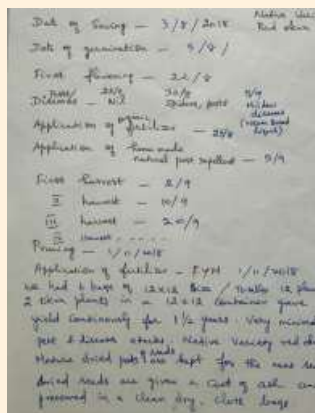 Date of Sowing - 3/8/2018 Native Vari
Red okra
Date of germination - 5/8/
First flowering - 22/8
Pest/ 25/8 30/8 5/9
Diseases - Nil Spiders, pests disease
Application of organic fertilizer - 25/8
Application of home made
natural pest repellent - 5/9
First harvest - 2/9
II harvest - 10/9
III harvest - 20/9
harvest - - - - -
Pruning - 1/11/2018
Application of fertilizer - FYM 1/11/2018
we had 6 bags of 12x12 12 plan
2 okra plants in a 12x12 container gave
yield continuously for 1 1/2 years. Very minimal
pest & disease attacks. Native Variety red
Mature dried pods of seeds kept for the next
dried seeds are given a coat of ash and
preserved in a clean dry. Close bags